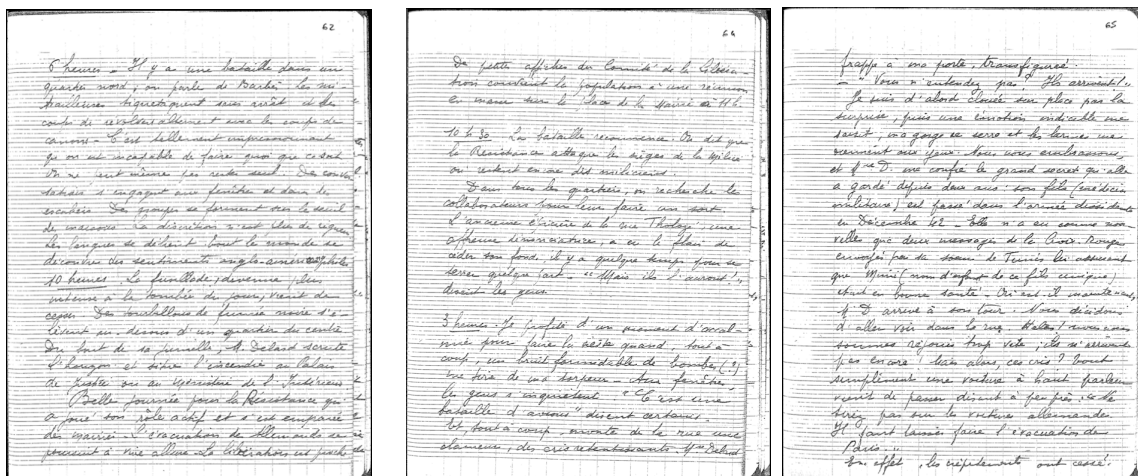 62
6 heures - Il y a une bataille dans un
quartier nord, on parle de Barbès. Les mi-
trailleuses tiquetiquent sans arrêt et les
coups de revolver alternent avec les coups de
canons - C'est tellement impressionnant
qu'on est incapable de faire quoi que ce soit
On ne peut même pas rester seul. Des conver
sations s'engagent aux fenêtres et dans les
escaliers. Des groupes se forment sur le seuil
de maisons. La discrétion n'est plus de rigueur
Les langues se délient. Tout le monde se
découvre des sentiments anglo-américanophiles
10 heures. La fusillade, devenue plus
intense à la tombée du jour, vient de
cesser. Des tourbillons de fumée noire s'é-
lèvent au-dessus d'un quartier du centre
Du haut de sa 
l'horizon et situe l'incendie au Palais
de justice ou au Ministère de l'Intérieur
Belle journée pour la Résistance qui
a joué son rôle actif et s'est emparée
des mairies. L'évacuation des Allemands se
poursuit à vive allure. La libération est proche
64
De petites affiches du Comité de la Libéra-
tion convient la population à une réunion
en masse sur la Place de la Mairie à
10 h 30 La bataille recommence. On dit que
la Résistance attaque les sièges de la Milice
où restent encore des miliciens.
Dans tous les quartiers, on recherche les
collaborateurs pour leur faire un sort.
L'ancienne épicière de la rue Tholozé, une
affreuse dénonciatrice, a eu le flair de
céder son fond, il y a quelque temps pour se
terrer quelque part. "Mais ils l'auront!",
disent les gens.
3 heures. Je profite d'un moment d'accal-
mie pour faire la sieste quand, tout à
coup, un bruit formidable de bombes (?)
me tire de ma torpeur - Aux fenêtres,
les gens s'inquiètent "C'est une
bataille d'avions" disent certains.
Et, tout à coup, monte de la rue une
clameur, des cris retentissants. Mme
65
frappe à ma porte, transfigurée.
- "Vous n'entendez pas? Ils arrivent!"
Je suis d'abord clouée sur place par la
surprise, puis une émotion indicible me
saisit, ma gorge se serre et les larmes me
viennent aux yeux. Nous nous embrassons,
et Mme D. me confie le grand secret qu'elle
a gardé depuis deux ans: son fils (médecin
militaire) est passé dans l'armée dissidente
en Décembre 42 - Elle n'a eu comme nou-
velles que deux messages de la Croix-Rouge
envoyés par sa soeur de Tunis les assurant
que Mimi (nom d'enfant de ce fils unique)
était en bonne santé. Où est-il maintenant,
M. D. arrive à son tour. Nous décidons
d'aller voir dans la rue. Hélas! nous nous
sommes réjouies trop vite; ils n'arrivent
pas encore. Mais alors, ces cris? Tout
simplement une voiture à haut parleur
vient de passer disant à peu près: "Ne
tirez pas sur les voitures allemandes
Il faut laisser faire l'évacuation de
Paris"..
En effet, les crépitements ont cessé.